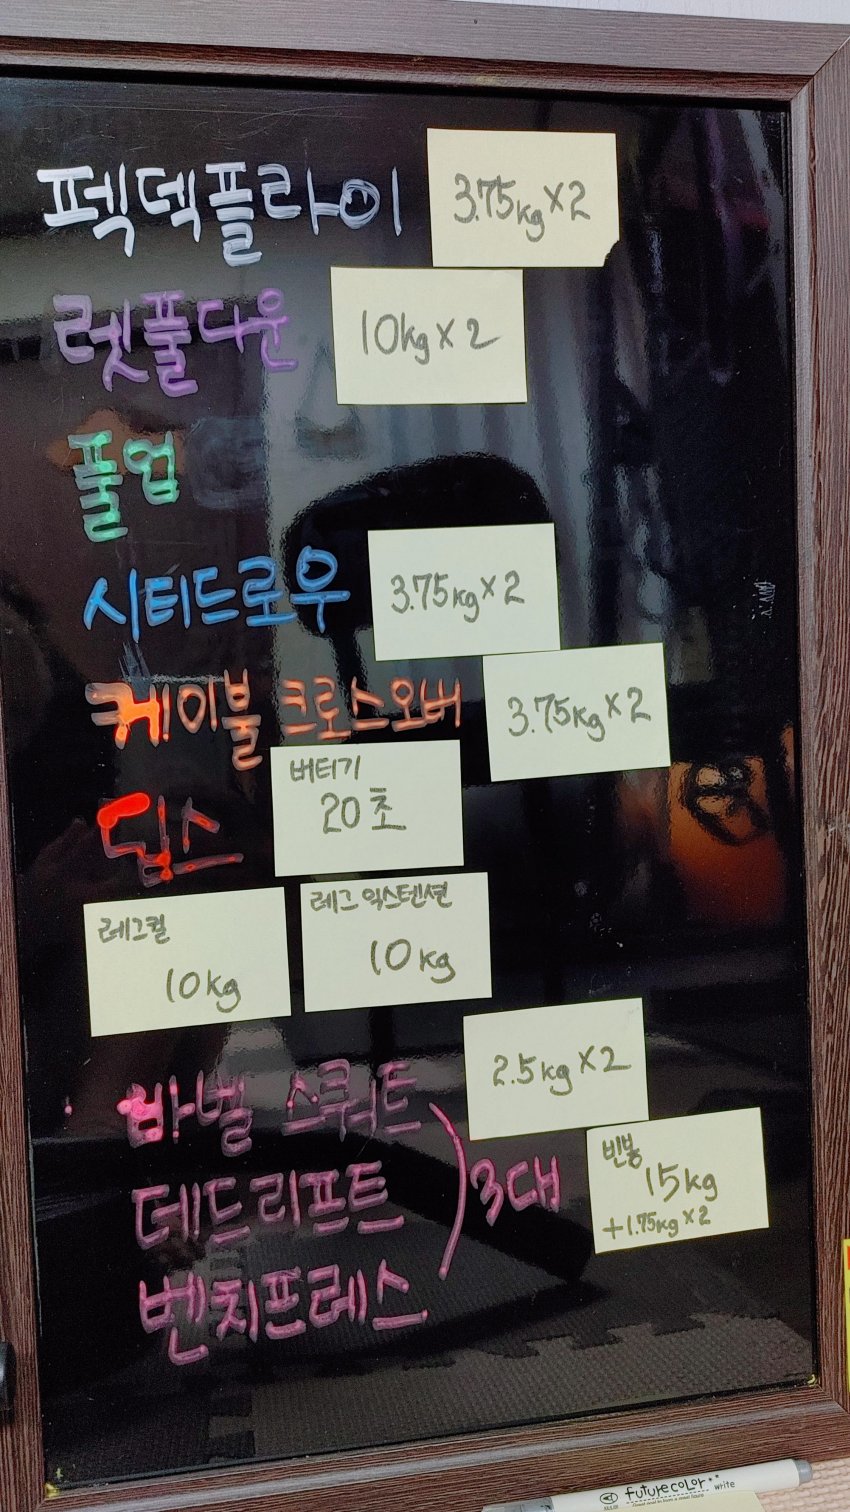 펙덱플라이
3.75kg×2
렛풀다운
10kg×2
풀업
시티드로우
3.75kg×2
케이블 크로스오버
3.75kg×2
딥스
버티기
20초
레그컬
10kg
레그 익스텐션
10kg
바벨 스쿼트
2.5kg×2
데드리프트
벤치프레스
3대
빈봉
15kg
+1.75kg×2
futurecolor
write